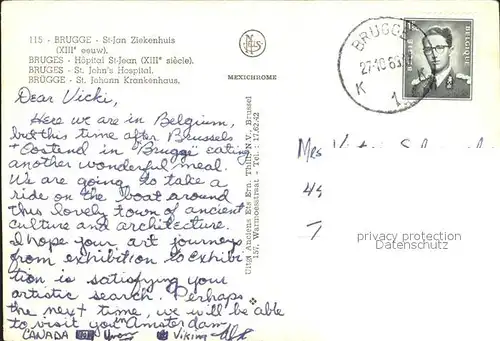 115 - BRUGGE - St-Jan Ziekenhuis
(XIIIe eeuw).
BRUGES - Hôpital St-Jean (XIIIe siècle).
BRUGES - St. John's Hospital.
BRÜGGE - St. Johann Krankenhaus.
MEXICHROME
Dear Vicki,
Here we are in Belgium,
but this time after Brussels
+ Oostend in "Brugge" eating
another wonderful meal.
We are going to take a
ride on the boat around
this lovely town of ancient
culture and architecture.
I hope your art journeys
from exhibition to exhibi-
tion is satisfying your
artistic search. Perhaps
the next time, we will be able
to visit you in Amsterdam
CANADA Viking
Uitg. Anciens Ets Ern. Thill, N.V., Brussel
157, Warmoesstraat - Tel.: 17.62.42
BRUGGE
27-10 63
K K
1
BELGIQUE
BELGIE
Mrs
45
privacy protection
Datenschutz